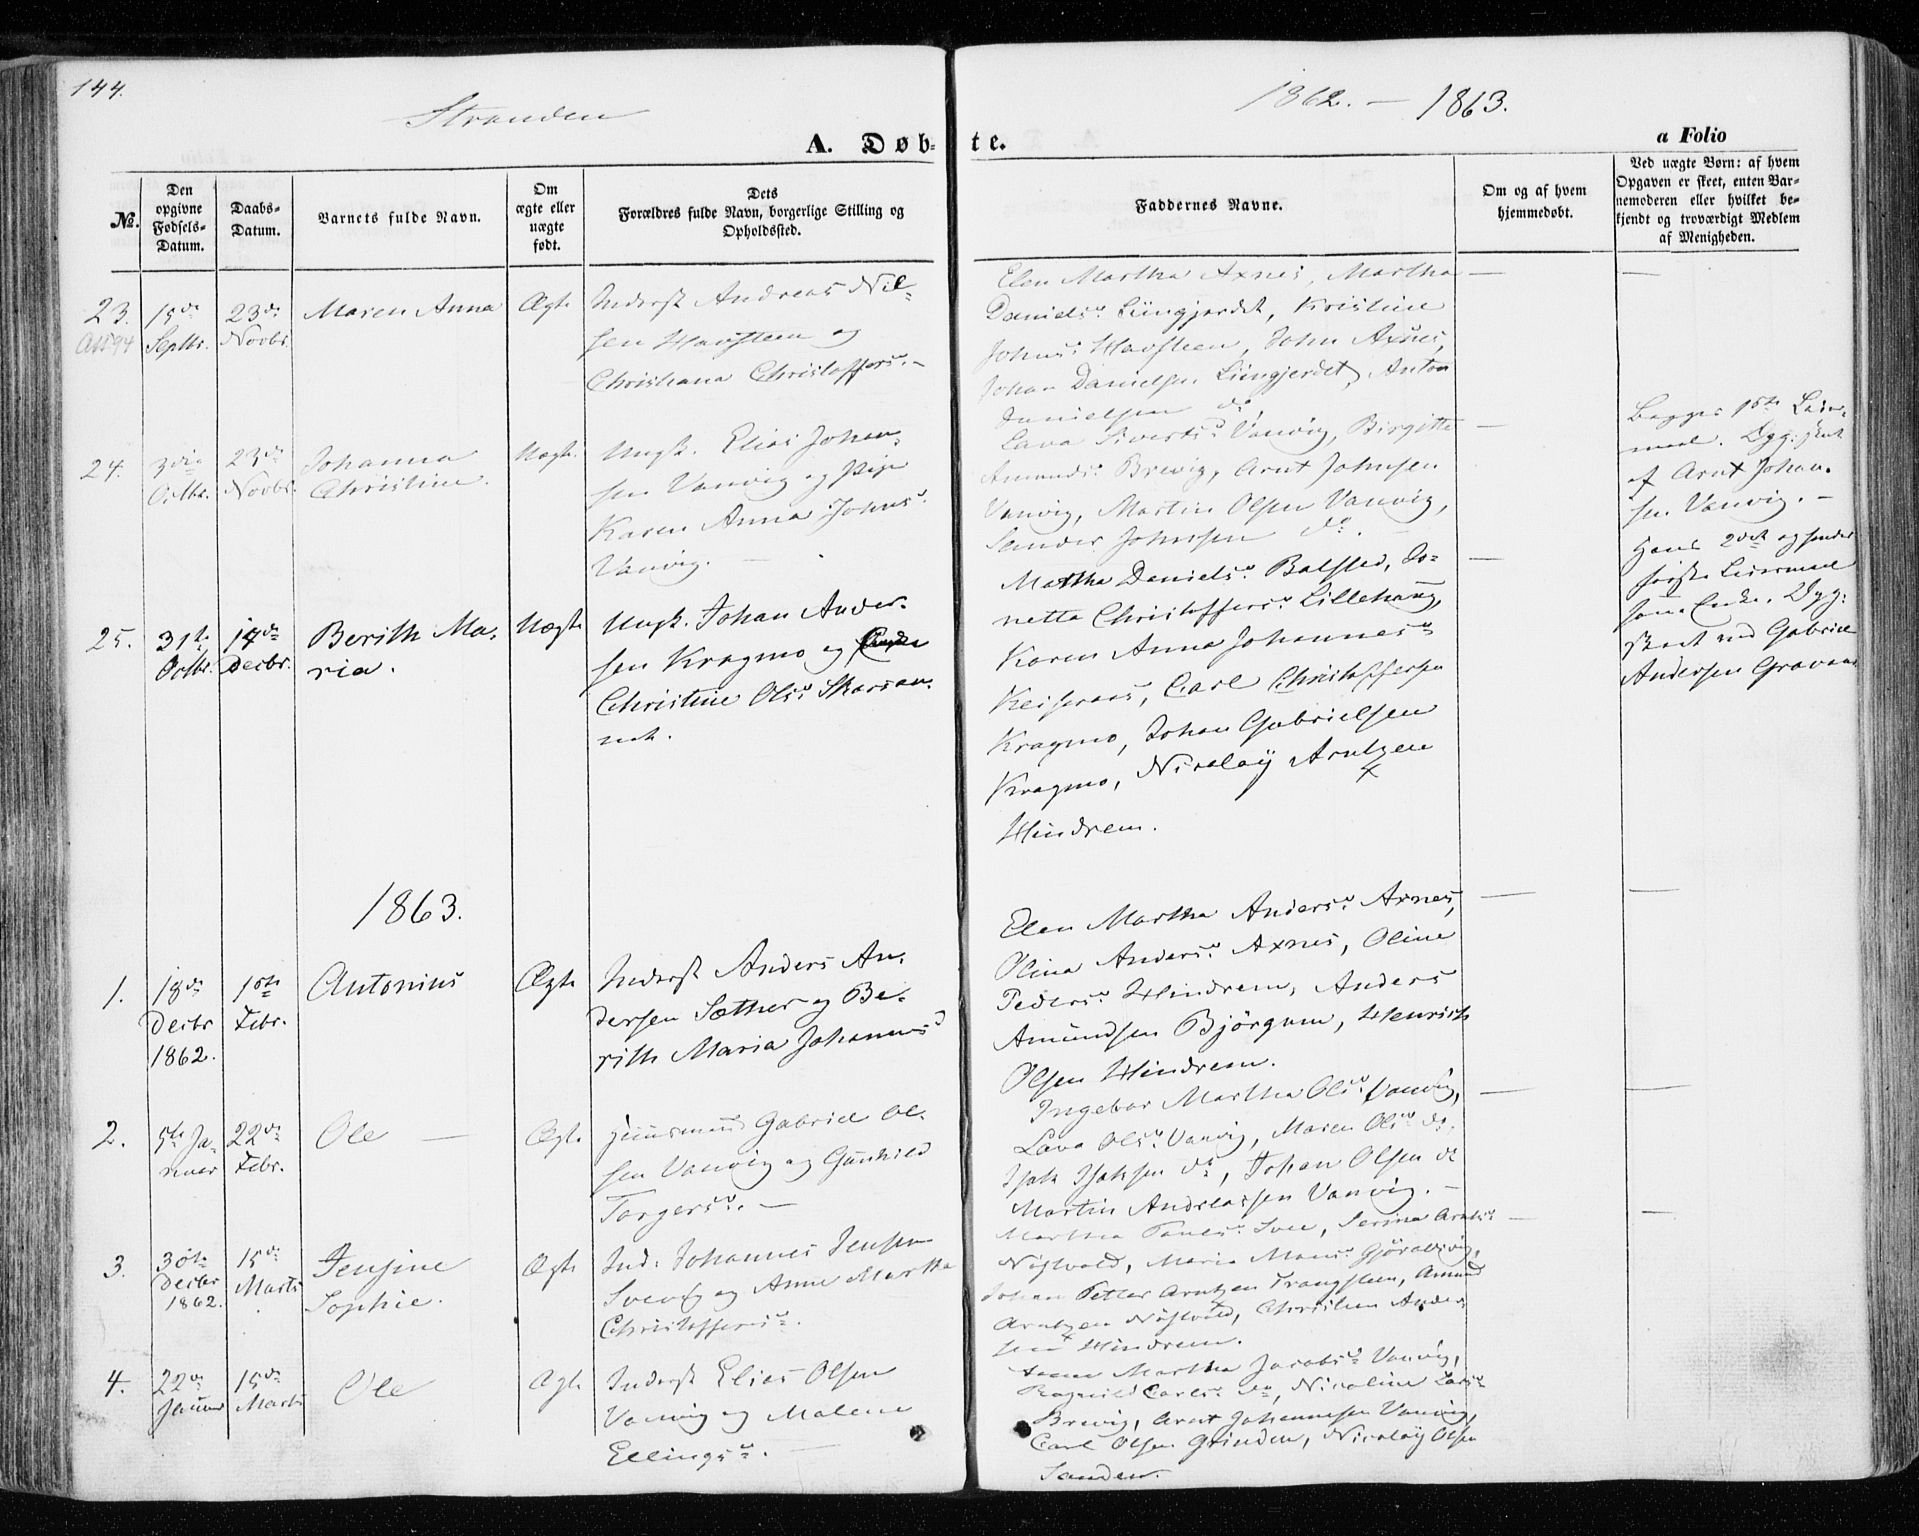 144.
Stranden
1862. — 1863.
A. Døb-
te.
a Folio
№.
Den
opgivne
Fødsels-
Datum.
Daabs-
Datum.
Barnets fulde Navn.
Om
ægte eller
uægte
født.
Dets
Forældres fulde Navn, borgerlige Stilling og
Opholdssted.
Faddernes Navne.
Om og af hvem
hjemmedøbt.
Ved uægte Børn: af hvem
Opgaven er skeet, enten Bar-
nemoderen eller hvilket be-
kjendt og troværdigt Medlem
af Menigheden.
23.
Att 94
Septbr.
23de
Novbr.
Maren Anna
Ægte
Inderst Andreas Nil-
sen Havsteen og
Christiana Christoffers. –
Elen Martha Axnes, Martha
Daniels. Liingjerdet, Kristine
Johns. Havsteen, John Axnes,
Johan Danielsen Liingjerdet, Anton
Danielsen do
24.
3die
Octbr.
23de
Novbr.
Johanna
Christine.
Uægte
Ungk. Elias Johan-
sen Vanvig og Pige
Karen Anna Johns.
Vanvig. —
Lava Siverts. Vanvig, Birgitte
Amunds. Brevig, Arnt Johnsen
Vanvig, Martin Olsen Vanvig,
Sander Johnsen do.
Begges 1ste Leier-
maal. Opg. skeet
af Arnt Johan-
sen Vanvig. –
25.
31te
Octbr.
14de
Decbr.
Berith Ma-
ria.
Uægte
Ungk. Johan Ander-
sen Kragmo og Enke
Christine Ols. Skarsau-
net.
Martha Daniels. Balsted, Jo-
netta Christoffers. Lillehaug,
Karen Anna Johannes.
Keiseraas, Carl Christoffersen
Kragmo, Johan Gabrielsen
Kragmo, Nicolay Arntzen
Hindrem.
Hans 2det og hendes
første Leiermaal
som Enke. Opg.
skeet ved Gabriel
Andersen Gravaas
1863.
1.
18de
Decbr
1862.
1ste
Febr.
Antonius
Ægte
Inderst Anders An-
dersen Sæther og Be-
rith Maria Johannesd
Elen Martha Anders. Axnes,
Olina Anders. Axnes, Oline
Peders. Hindrem, Anders
Amundsen Bjørgum, Henrich
Olsen Hindrem.
2.
5te Ja-
nuar
22de
Febr.
Ole —
Ægte
Huusmand Gabriel Ol-
sen Vanvig og Gunhild
Torgers. —
Ingebor Martha Ols. Vanvig,
Lava Ols. Vanvig, Maren Ols. do.
Isak Isaksen do, Johan Olsen do
Martin Andreassen Vanvig. –
3.
30te
Decbr
1862.
15de
Marts
Jensine
Sophie.
Ægte
Ind. Johannes Jensen
og Anne Martha
Christoffers.
Serina Arnts.
Nøstvold, Maria Mons.
Johan Petter Arntzen Trangsteen, Amund
Arntzen Nøstvold, Christian Ander-
sen Hindrem.
4.
22de
Januar
15de
Marts
Ole
Ægte
Inderst Elias Olsen
Vanvig og Malene
Ellings. —
Anne Martha Jacobs. Vanvig,
Ragnild Carls. do, Nicoline Lars.
Brevig, Arnt Johannesen Vanvig,
Carl Olsen Grinden, Nicolay Olsen
Sanden.